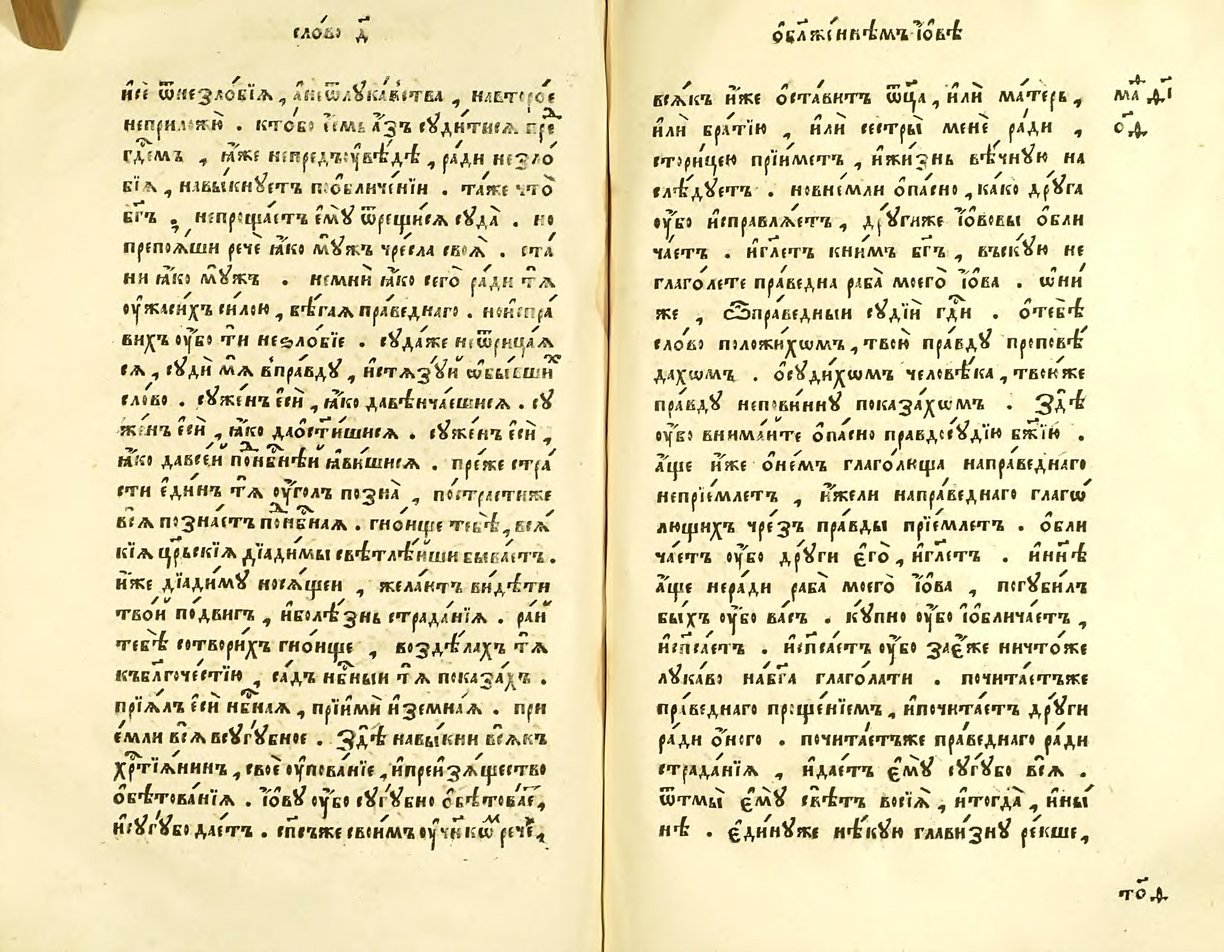 сло́во д҃
и҆сѐ ѿнезло́бїѧ , а҆нѝѿлꙋка́вьства , навторо́е
неприложꙋ̀ . кто́бо є҆́смь а҆́зъ сꙋди́тисѧ преⷣ
гдⷭ҇емъ , ꙗ҆́же непредъꙋвѣ́дѣ , ра́ди незло́
бїѧ , навы́кнꙋетъ пⷪ҇обличе́нїи . та́же что̀
бг҃ъ , непроща́етъ є҆мꙋ̀ ѿрещи́сѧ сꙋда̀ . но
препоѧ́ши речѐ ꙗ҆́ко мꙋ́жъ чре́сла своѧ̀ . ста́
ни ꙗ҆́ко мꙋ́жъ . немни́ ꙗ҆́ко сего̀ ра́ди тѧ̀
ᲂу҆жаси́хъ си́лою , бѣ́гаѧ пра́веднаго . нои҆спра́
вихъ ᲂу҆́бо ти́ незло́бїе . сꙋда́же неѿрица́ѧ
сѧ , сꙋдѝ мѧ̀ впра́вдꙋ , и҆стѧзꙋ́й ѡ҆бы́вшиⷯ
сло́во . сꙋ́женъ є҆сѝ , ꙗ҆́ко давѣнча́ешисѧ . сꙋ́
женъ є҆сѝ , ꙗ҆́ко даѡ҆сти́шисѧ . сꙋ́женъ є҆сѝ ,
ꙗ҆́ко давсе́й поⷣнбⷭ҇нѣй ꙗ҆ви́шисѧ . пре́же стра́
сти є҆ди́нъ тѧ̀ ᲂу҆́голъ позна̀ , пострасти́же
всѧ̀ позна́етъ поⷣнбⷭ҇наѧ . гно́ище тебѣ̀ , всѧ́
кїѧ црⷭ҇кїѧ дїади́мы свѣтлѣ́йши быва́етъ .
и҆́же дїади́мꙋ носѧ́щеи , жела́ютъ ви́дѣти
тво́й по́двигъ , и҆болѣ́знь страда́нїѧ . ра́й
тебѣ̀ сотвори́хъ гно́ище , возде́лахъ тѧ̀
къблгⷪ҇че́стїю , са́дъ нбⷭ҇ныи тѧ̀ показа́хъ .
прїѧ́лъ є҆сѝ нбⷭ҇наѧ , прїимѝ и҆земна́ѧ . прї
е́мли всѧ̀ всꙋгꙋ́бное . Здѣ̀ навы́кни всѧ́къ
хрⷭ҇тїѧ́нинъ , своѐ ᲂу҆пова́нїе , и҆преизѧ́щество
ѡ҆бѣтова́нїѧ . І҆́ѡвꙋ ᲂу҆́бо сꙋгꙋ́бно ѡ҆бѣтова̀е ,
и҆сꙋгꙋ́бо дае́тъ . сп҃съже свои́мъ ᲂу҆чн҃кѡⷨ речѐ ,
ѡ҆блаже́ннѣмъ І҆́ѡвѣ
всѧ́къ и҆́же ѡ҆ста́витъ ѿц҃а̀ , и҆лѝ ма́терь ,
и҆лѝ бра́тїю , и҆лѝ сестры̀ менѐ ра́ди ,
стори́цею прїи́метъ , и҆жи́знь вѣ́чнꙋю на
слѣ́дꙋетъ . новне́мли ѻ҆па́сно , ка́ко дрꙋ́га
ᲂу҆́бо и҆справлѧ́етъ , дрꙋ́гиже І҆́ѡвовы ѡ҆бли
ча́етъ . и҆гл҃етъ кни́мъ бг҃ъ , вьскꙋ́ю не
глаго́лете пра́ведна раба̀ моего̀ І҆́ѡва . ѡ҆ни́
же , Ѽпра́ведныи сꙋдїѝ гдⷭ҇и . ѡ҆тебѣ̀
сло́во положи́хѡмъ , твою̀ пра́вдꙋ проповѣ́
дахѡмъ . ѡ҆сꙋди́хѡмъ человѣ́ка , твою́же
пра́вдꙋ непови́ннꙋ показа́хѡмъ . Здѣ̀
ᲂу҆́бо внима́йте ѻ҆па́сно правдосꙋ́дїю бж҃їю .
а҆́ще и҆́же ѡ҆не́мъ глаго́люща направеднаго
непрїе́млетъ , и҆жели направеднаго глаго́
лющихъ чре́зъ пра́вды прїе́млетъ . ѡ҆бли
ча́етъ ᲂу҆́бо дрꙋ́ги є҆го̀ , и҆гл҃етъ . и҆ны́нѣ
а҆́ще неради раба̀ моего̀ І҆́ѡва , погꙋби́лъ
бы́хъ ᲂу҆́бо ва́съ . кꙋ́пно ᲂу҆́бо и҆ѡбличаетъ ,
и҆сп҃са́етъ . и҆сп҃са́етъ ᲂу҆́бо зае́же ничто́же
лꙋка́во набг҃а глаго́лати . почита́етъже
пра́веднаго проще́нїемъ , и҆почита́етъ дрꙋ́ги
ра́ди ѻ҆́ного . почита́етъже пра́веднаго ра́ди
страда́нїѧ , и҆дае́тъ є҆мꙋ̀ сꙋгꙋ́бо всѧ̀ .
ѿтмы̀ є҆мꙋ̀ свѣ́тъ восїѧ̀ , и҆тогда̀ , и҆ны́
нѣ . є҆ди́нꙋже нѣ́кꙋю главизнꙋ ре́кше ,
маⷴ҇ д҃і
ѻ҆д҃